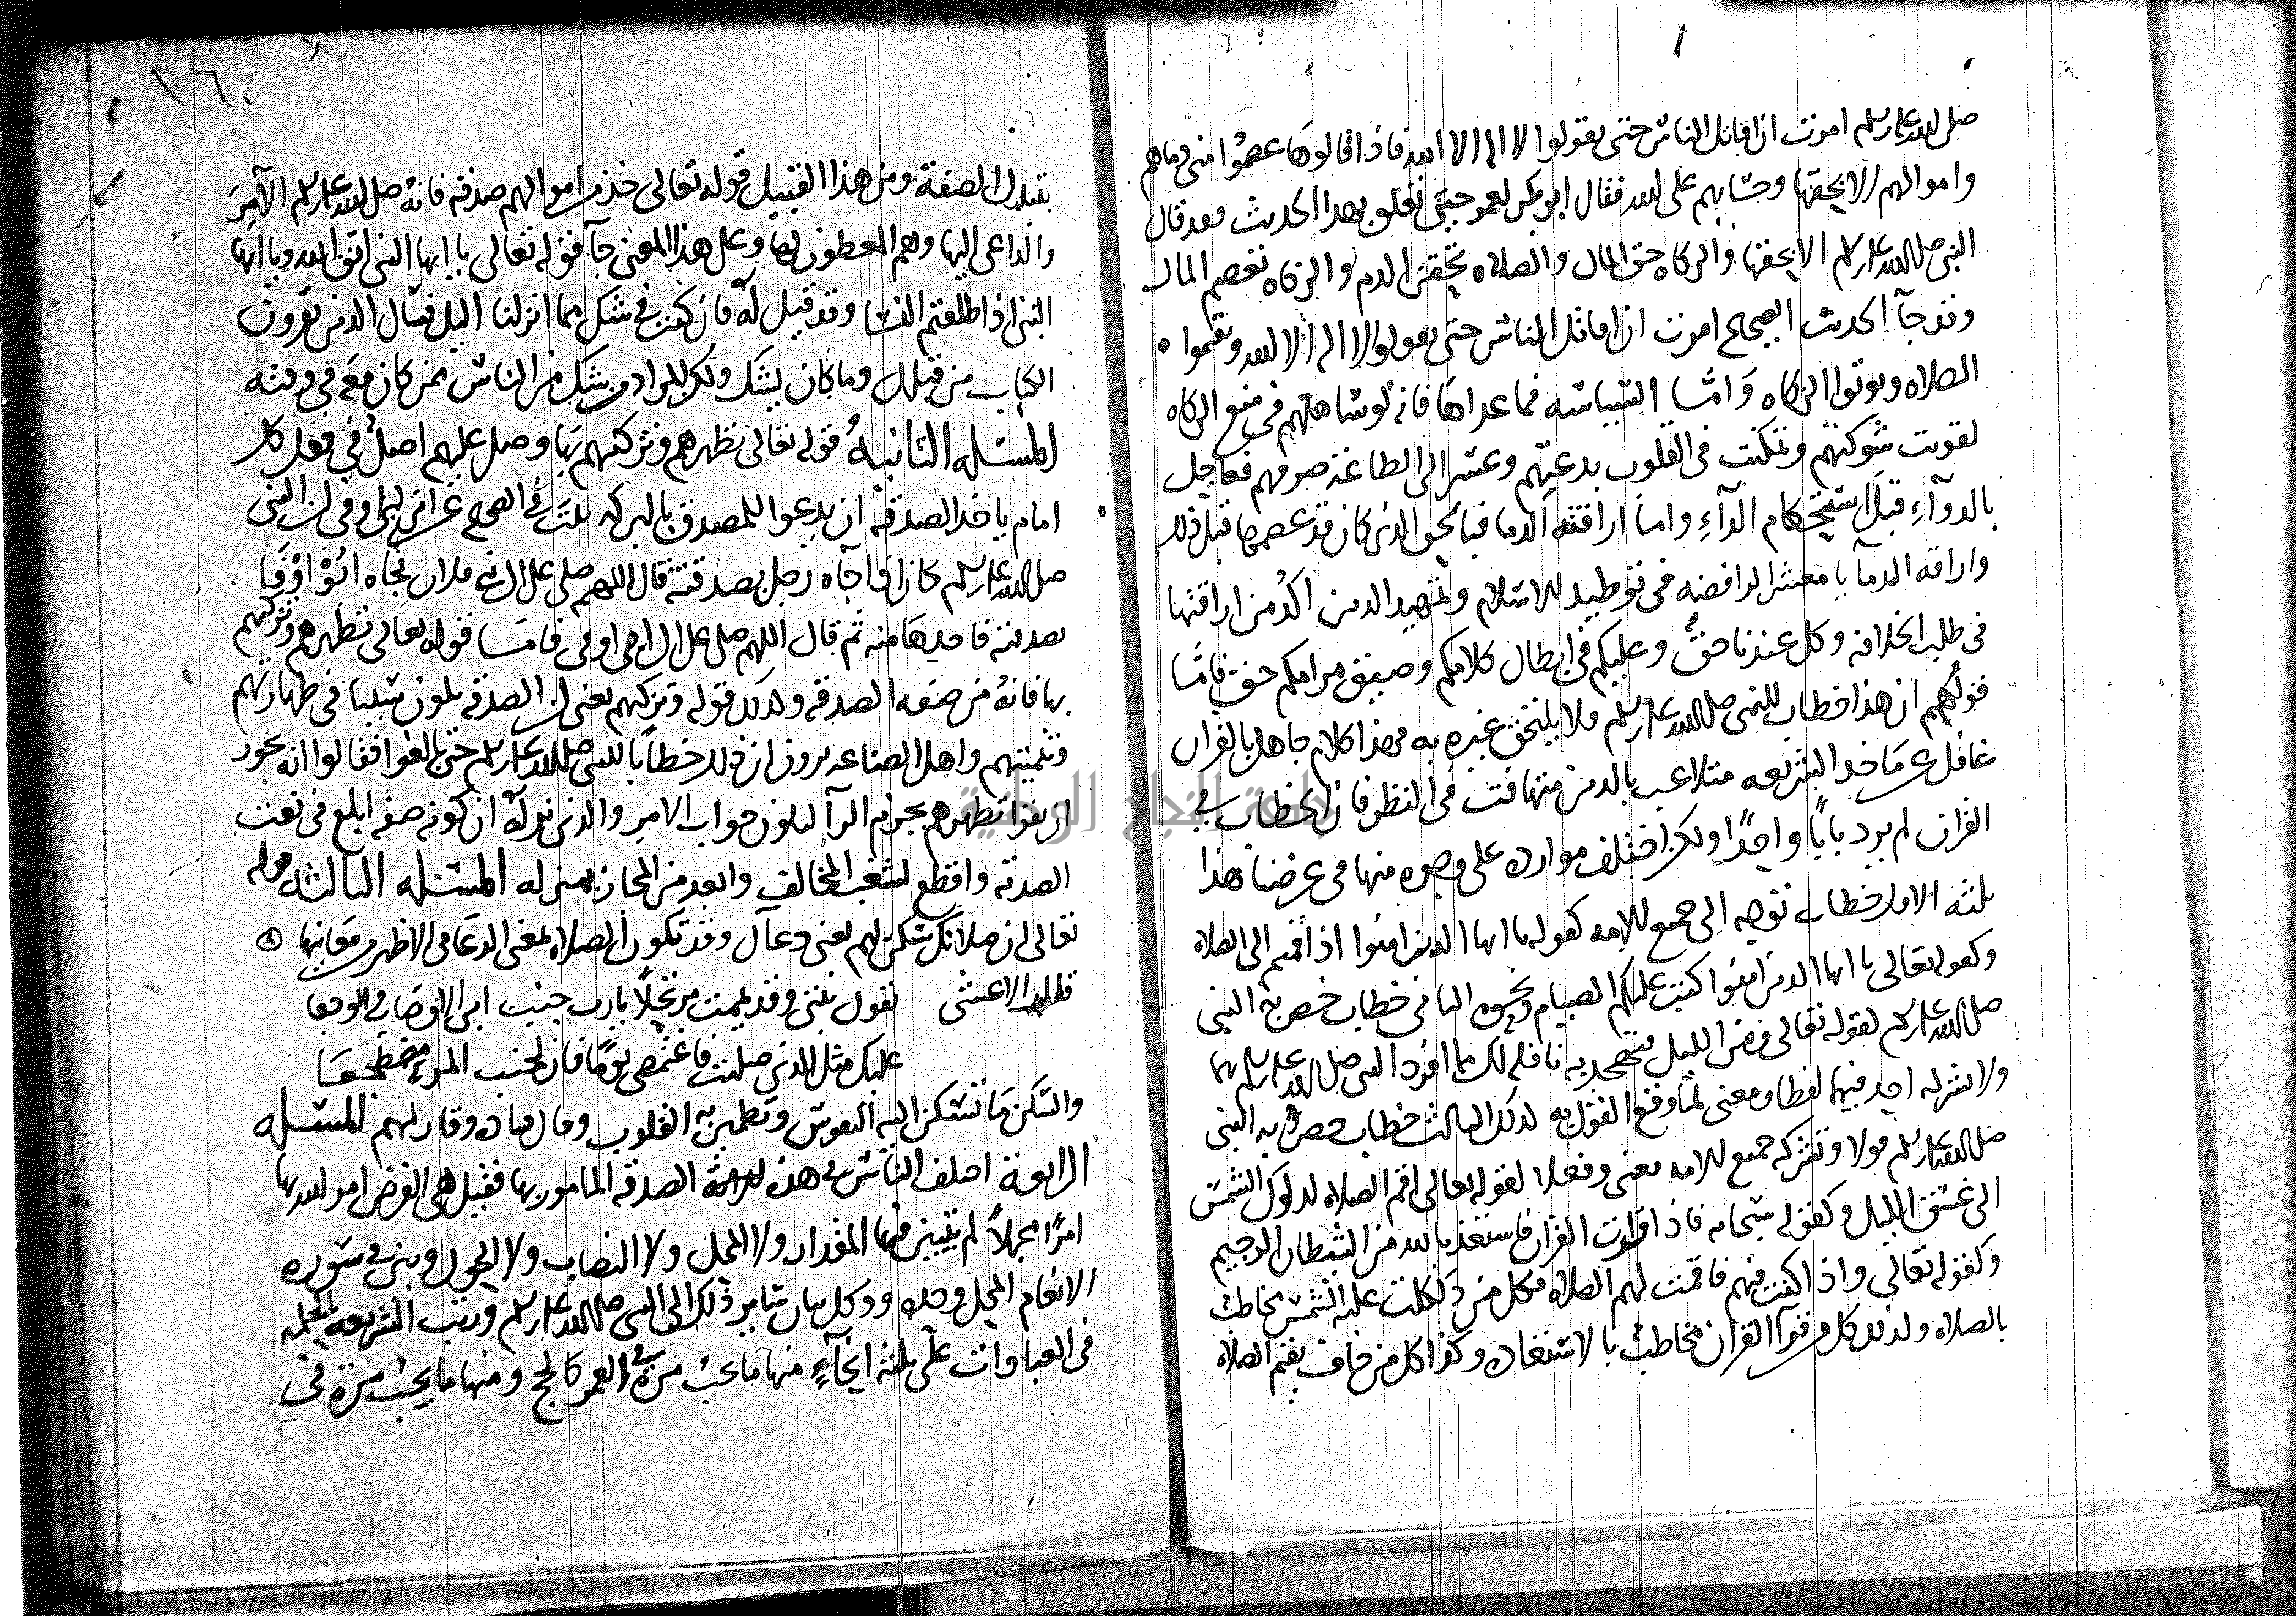 صلى الله عليه وسلم امرت ان اقاتل الناس حتى يقولوا لا اله الا الله فاذا قالوها عصموا مني دماهم
واموالهم الا بحقها وحسابهم على الله فقال ابو بكر لعمر حين تعلق بهذا الحديث فقد قال
النبي صلى الله عليه وسلم الا بحقها والزكاه حق المال والصلاه تحقن الدم والزكاه تعصم المال
وقد جآ الحديث الصحيح امرت ان اقاتل الناس حتى يقولوا لا اله الا الله ويقيموا
الصلاه ويوتوا الزكاه وامّا السياسه فما عداها فانه لو ساهلهم في منع الزكاه
لقويت شوكتهم وتمكنت في القلوب بدعتهم وعسر الى الطاعة صرفهم فعاجل
بالدوآء قبل استحكام الدآء واما اراقته الدما فبالحق الذي كان قد عصمها قبل ذلك
واراقه الدمآ يا معشر الرافضه في توطيد الاسلام وتمهيد الدين اكد من اراقتها
في طلب الخلافه وكل عندنا حقٌ وعليكم في ابطال كلامكم وضيق مرامكم حق فامّا
قولهم ان هذا خطاب للنبي صلى الله عليه وسلم فلا يلتحق غيره به فهذا كلام جاهل بالقران
غافل عن ماخذ الشريعه متلاعب بالدين متهافت في النظر فان الخطاب في
القران لم يرد باباً واحدًا ولكن اختلف موارده على وجوه منها في غرضنا هذا
ثلثه الاول خطاب توجه الى جميع الامه كقوله يا ايها الذين امنوا اذا قمتم الى الصلاه
وكقوله تعالى يا ايها الذين امنوا كتب عليكم الصيام ونحوه الثاني خطاب خص به النبي
صلى الله عليه وسلم كقوله تعالى ومن الليل فتهجد به نافلة لك مما افرد النبي صلى الله عليه وسلم بهما
ولا يشركه احد فيهما لفظا ومعنى لما وقع القول به كذلك الثالث خطاب خص به النبي
صلى الله عليه وسلم قولا وتشركه جميع الامه معنى وفعلا كقوله تعالى اقم الصلاه لدلوك الشمس
الى غسق الليل وكقوله سبحانه فاذا قرات القران فاستعذ بالله من الشيطان الرجيم
وكقوله تعالى واذا كنت فيهم فاقمت لهم الصلاه فكل من دلكت عليه الشمس مخاطب
بالصلاه وكذلك كل من قرآ القران مخاطب بالاستعاذه وكذا كل من خاف يقيم الصلاه
١٦٠
بتلك الصفة ومن هذا القبيل قوله تعالى خذ من اموالهم صدقه فانه صلى الله عليه وسلم الآمر
والداعي اليها وهم المعطون لها وعلى هذا المعنى جآ قوله تعالى يا ايها النبي اتق الله ويا ايها
النبي اذا طلقتم النسا وقد قيل له فان كنت في شك مما انزلنا اليك فسال الذين يقرون
الكتاب من قبلك وما كان يشك ولكن المراد من شك من الناس ممن كان معه في وقته
المسئله الثانيه قوله تعالى تطهرهم وتزكيهم بها وصل عليهم اصل في فعل كل
امام ياخذ الصدقه ان يدعوا للمصدق بالبركه ثبت في الصحيح عن ابن ابي اوفى ان النبي
صلى الله عليه وسلم كان اذا جآه رجل بصدقته قال اللهم صلى على ال فلان فجاه ابو اوفى
بصدقته فاخذها منه ثم قال اللهم صل على ال ابي اوفى فامّا قوله تعالى تطهرهم وتزكيهم
بها فانه من صفه الصدقه وكذلك قوله وتزكيهم يعني ان الصدقه تكون سببا في طهارتهم
وتنميتهم واهل الصناعه يرون ان ذلك خطاباً للنبي صلى الله عليه وسلم حتى بالغوا فقالوا انه يجوز
ان يقرا تطهرهم بجزم الرآ ليكون جواب الامر والذي نراه ان كونه صفه ابلغ في نعت
الصدقه واقطع لشغب المخالف وابعد من المجاز بمنزله المسئله الثالثه قوله
تعالى ان صلاتك سكن لهم يعني دعآك وقد تكون الصلاه بمعنى الدعا في الاظهر من معانيها
قال الاعشى تقول بنتي وقد يممت مرتحلاً يا رب جنب ابي الاوصاب والوجعا
عليك مثل الذي صليت فاغتمضي يومًا فان لجنب المرء مضطجعا
والسكن ما تسكن اليه النفوس وتطمين به القلوب وقال قتاده وقار لهم المسئله
الرابعة اختلف الناس في هذه الصدقه المامور بها فقيل هي الفرض امر الله بها
امرًا مجملاً لم يتبين فيها المقدار ولا المحل ولا النصاب ولا الحول وبين في سوره
الانعام المحل وحده ووكل بيان ساير ذلك الى النبي صلى الله عليه وسلم ورتبت الشريعه بالحكمه
في العبادات على ثلثه انحآءٍ منها ما يجب مرة في العمر كالحج ومنها ما يجب مرة في